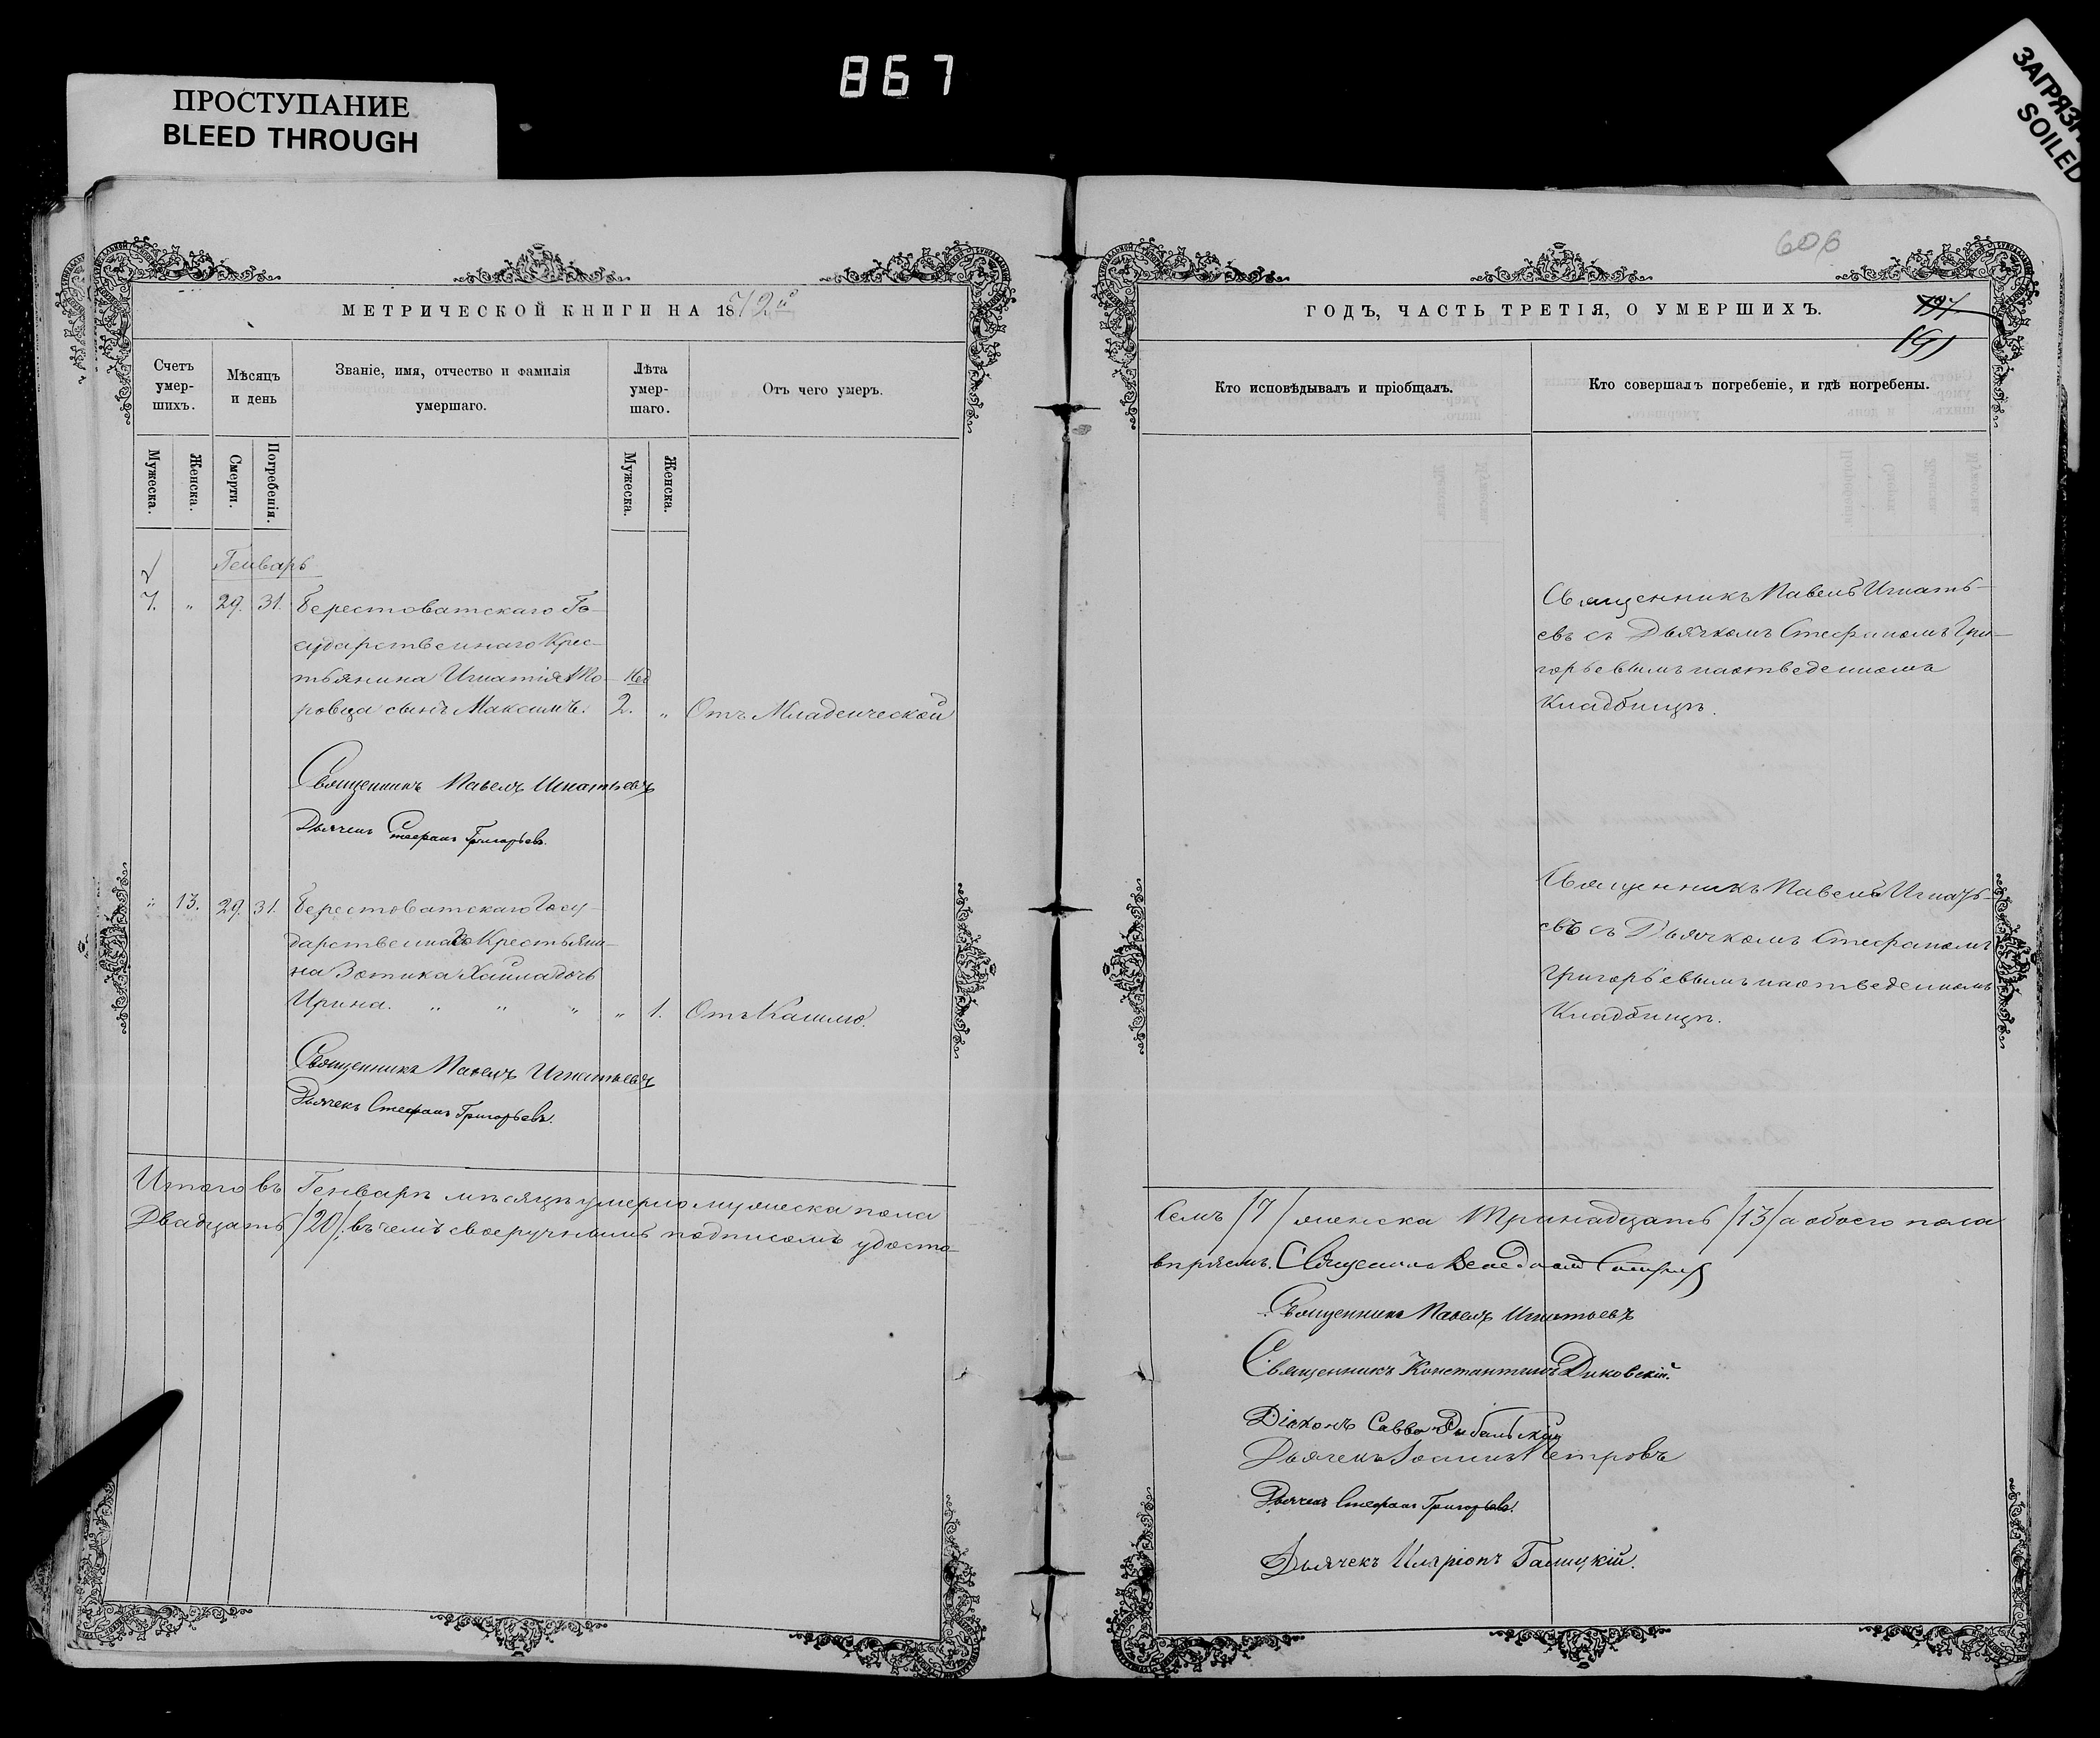 867
ПРОСТУПАНИЕ
BLEED THROUGH
SOILED
606
МЕТРИЧЕСКОЙ КНИГИ НА 1872й
Счетъ умер-шихъ.
Мѣсяцъ и день
Званіе, имя, отчество и фамилія умершаго.
Лѣта умер-шаго.
Отъ чего умеръ.
Мужеска.
Женска.
Смерти.
Погребенія.
Мужеска.
Женска.
Генварь
7. " 29. 31. Берестоватскаго Го-
сударственнаго Крес-
тьянина Игнатія
ровца сынъ Максимъ. 2. " Отъ Младенческой
Священникъ Павелъ Игнатьевъ
Дьячекъ Стефанъ Григорьевъ.
" 13. 29. 31. Берестоватскаго Госу-
дарственнаго Крестьяни-
на Зотика дочь
Ирина. " " " " 1. Отъ Кашлю.
Священникъ Павелъ Игнатьевъ
Дьячекъ Стефанъ Григорьевъ.
Итого въ Генварѣ мѣсяцѣ умерло мужеска пола
Двадцать /20/. въ чемъ своеручнымъ подписомъ удосто-
ГОДЪ, ЧАСТЬ ТРЕТІЯ, О УМЕРШИХЪ.
191
Кто исповѣдывалъ и пріобщалъ.
Кто совершалъ погребеніе, и гдѣ погребены.
Священникъ Павелъ Игнать-
евъ съ Дьячкомъ Стефаномъ Гри-
горьевымъ на отведенномъ
Кладбищѣ.
Священникъ Павелъ Игнать-
евъ съ Дьячкомъ Стефаномъ
Григорьевымъ на отведенномъ
Кладбищѣ.
Семь /7/ женска Тринадцать /13/ а обоего пола
вѣряемъ. Священникъ
Священникъ Павелъ Игнатьевъ
Священникъ Константинъ Диковскій.
Діаконъ Савва Рыбальскій
Дьячекъ Іоаннъ Петровъ
Дьячекъ Стефанъ Григорьевъ.
Дьячекъ Иларіонъ Галицкій.